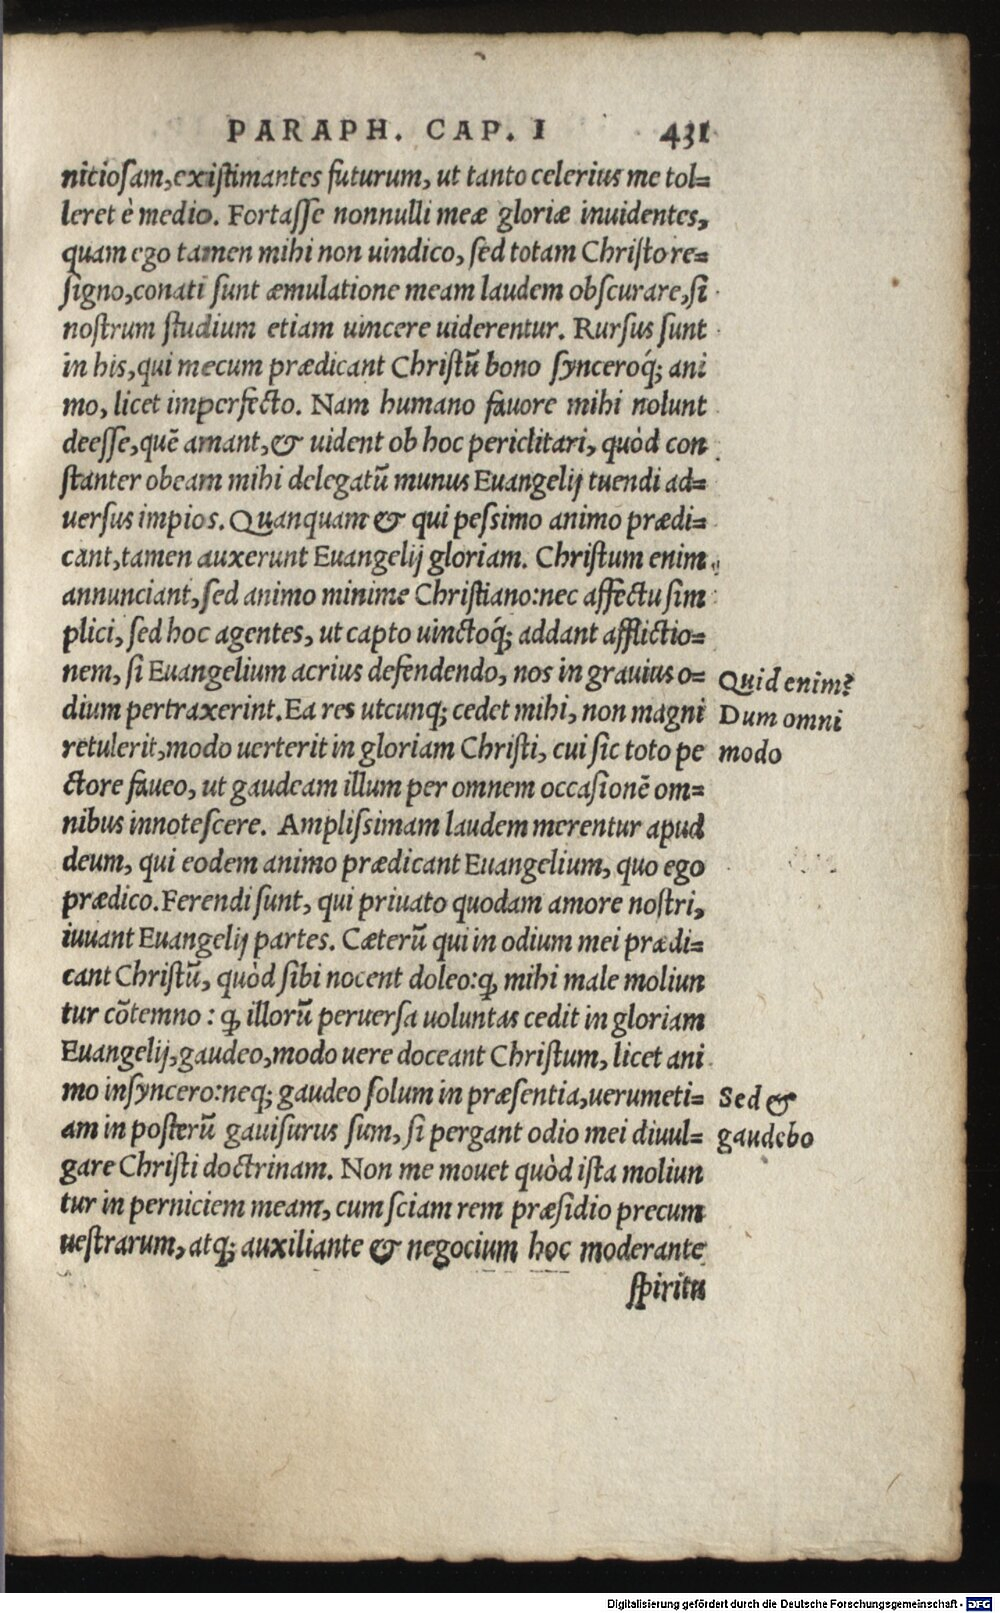 PARAPH. CAP. I 431
niciosam, existimantes futurum, ut tanto celerius me tol=
leret è medio. Fortasse nonnulli meæ gloriæ inuidentes,
quam ego tamen mihi non uindico, sed totam Christo re=
signo, conati sunt æmulatione meam laudem obscurare, si
nostrum studium etiam uincere uiderentur. Rursus sunt
in his, qui mecum prædicant Christũ bono synceroq́; ani
mo, licet imperfecto. Nam humano fauore mihi nolunt
deesse, quẽ amant, & uident ob hoc periclitari, quòd con
stanter obeam mihi delegatũ munus Euangelij tuendi ad=
uersus impios. Quanquam & qui pessimo animo prædi=
cant, tamen auxerunt Euangelij gloriam. Christum enim
annunciant, sed animo minime Christiano: nec affectu sim
plici, sed hoc agentes, ut capto uinctoq́; addant afflictio=
nem, si Euangelium acrius defendendo, nos in grauius o=
dium pertraxerint. Ea res utcunq; cedet mihi, non magni
retulerit, modo uerterit in gloriam Christi, cui sic toto pe
ctore faueo, ut gaudeam illum per omnem occasionẽ om=
nibus innotescere. Amplissimam laudem merentur apud
deum, qui eodem animo prædicant Euangelium, quo ego
prædico. Ferendi sunt, qui priuato quodam amore nostri,
iuuant Euangelij partes. Cæterũ qui in odium mei prædi=
cant Christũ, quòd sibi nocent doleo: ꝙ mihi male moliun
tur cõtemno: ꝙ illorũ peruersa uoluntas cedit in gloriam
Euangelij, gaudeo, modo uere doceant Christum, licet ani
mo insyncero: neq; gaudeo solum in præsentia, uerumeti=
am in posterũ gauisurus sum, si pergant odio mei diuul=
gare Christi doctrinam. Non me mouet quòd ista moliun
tur in perniciem meam, cum sciam rem præsidio precum
uestrarum, atq; auxiliante & negocium hoc moderante
spiritu
Quid enim?
Dum omni
modo
Sed &
gaudebo
Digitalisierung gefördert durch die Deutsche Forschungsgemeinschaft - DFG